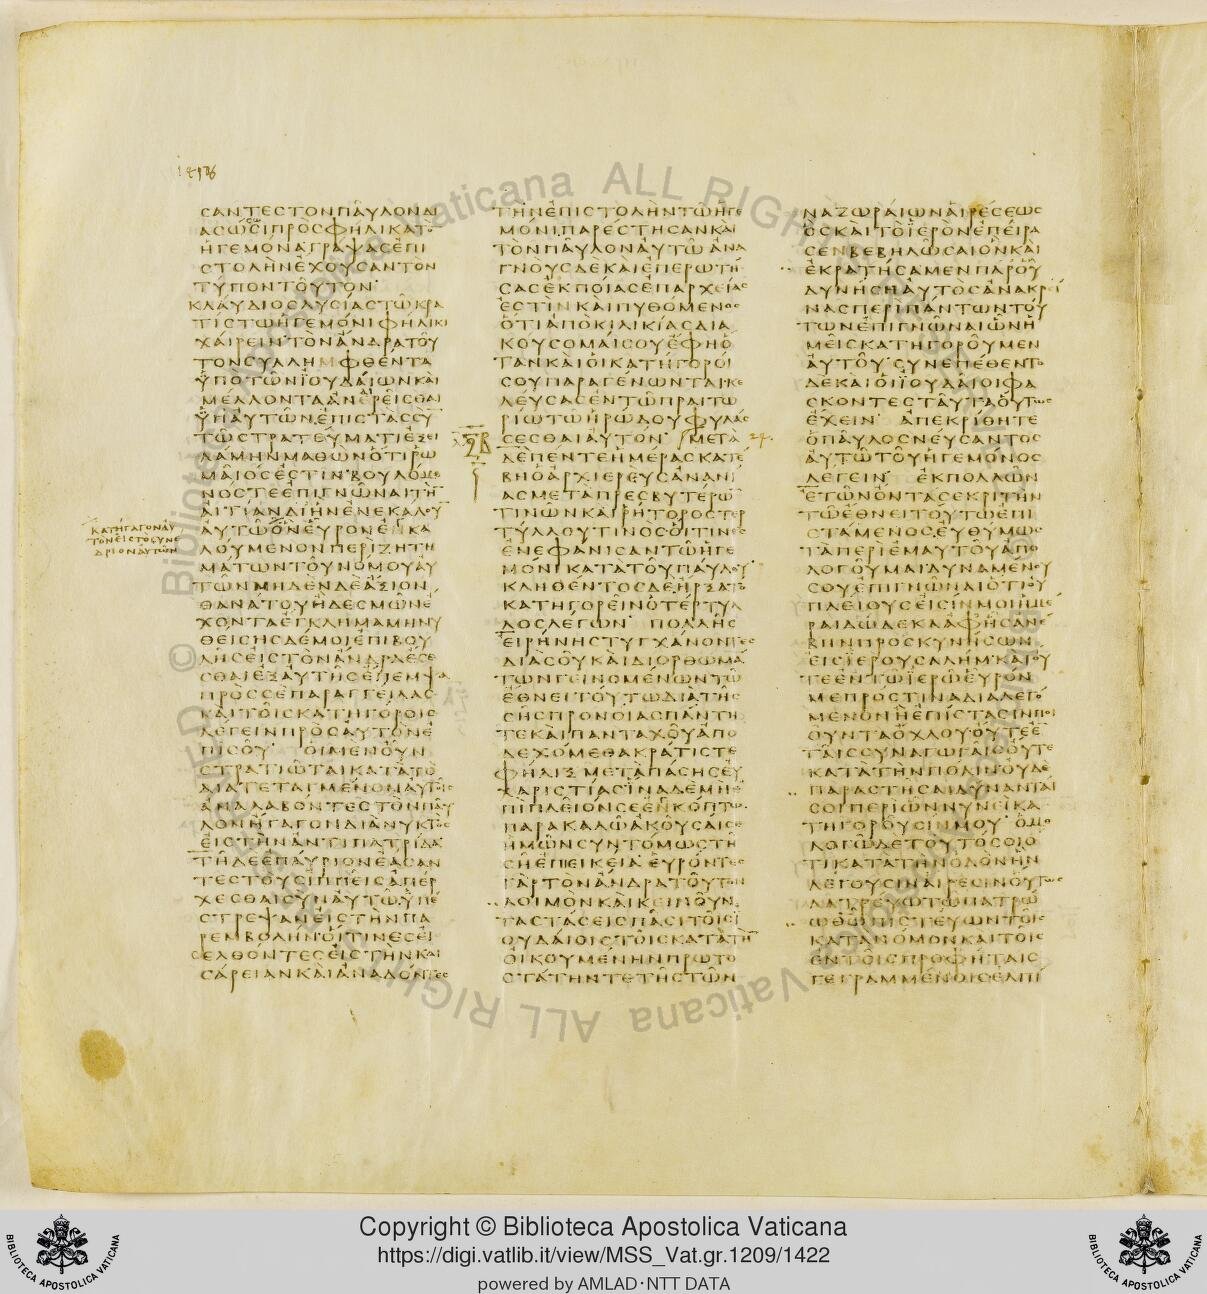 ϹΑΝΤΕϹΤΟΝΠΑΥΛΟΝΔΙ
ΑϹΩϹΩϹΙΠΡΟϹΦΗΛΙΚΑΤΟ̅
ΗΓΕΜΟΝΑΓΡΑΨΑϹΕΠΙ
ϹΤΟΛΗΝΕΧΟΥϹΑΝΤΟΝ
ΤΥΠΟΝΤΟΥΤΟΝ
ΚΛΑΥΔΙΟϹΛΥϹΙΑϹΤΩΚΡΑ
ΤΙϹΤΩΗΓΕΜΟΝΙΦΗΛΙΚΙ
ΧΑΙΡΕΙΝΤΟΝΑΝΔΡΑΤΟΥ
ΤΟΝϹΥΛΛΗΜΦΘΕΝΤΑ
ΥΠΟΤΩΝΙΟΥΔΑΙΩΝΚΑΙ
ΜΕΛΛΟΝΤΑΑΝΕΡΕΙϹΘΑΙ
ΥΠΑΥΤΩΝΕΠΙϹΤΑϹϹΥ
ΤΩϹΤΡΑΤΕΥΜΑΤΙΕΞΕΙ
ΛΑΜΗΝΜΑΘΩΝΟΤΙΡΩ
ΜΑΙΟϹΕϹΤΙΝ·ΒΟΥΛΟΜΕ
ΝΟϹΤΕΕΠΙΓΝΩΝΑΙΤΗ̅
ΑΙΤΙΑΝΔΙΗΝΕΝΕΚΑΛΟΥ̅
ΑΥΤΩΟΝΕΥΡΟΝΕΝΚΑ
ΛΟΥΜΕΝΟΝΠΕΡΙΖΗΤΗ
ΜΑΤΩΝΤΟΥΝΟΜΟΥΑΥ
ΤΩΝΜΗΔΕΝΔΕΑΞΙΟΝ
ΘΑΝΑΤΟΥΗΔΕϹΜΩΝΕ
ΧΟΝΤΑΕΓΚΛΗΜΑΜΗΝΥ
ΘΕΙϹΗϹΔΕΜΟΙΕΠΙΒΟΥ
ΛΗϹΕΙϹΤΟΝΑΝΔΡΑΕϹΕ
ϹΘΑΙΕΞΑΥΤΗϹΕΠΕΜΨΑ
ΠΡΟϹϹΕΠΑΡΑΓΓΕΙΛΑϹ
ΚΑΙΤΟΙϹΚΑΤΗΓΟΡΟΙϹ
ΛΕΓΕΙΝΠΡΟϹΑΥΤΟΝΕ
ΠΙϹΟΥ· ΟΙΜΕΝΟΥΝ
ϹΤΡΑΤΙΩΤΑΙΚΑΤΑΤΟ
ΔΙΑΤΕΤΑΓΜΕΝΟΝΑΥΤΟΙϹ
ΑΝΑΛΑΒΟΝΤΕϹΤΟΝΠΑΥ
ΛΟΝΗΓΑΓΟΝΔΙΑΝΥΚΤΟϹ
ΕΙϹΤΗΝΑΝΤΙΠΑΤΡΙΔΑ
ΤΗΔΕΕΠΑΥΡΙΟΝΕΑϹΑΝ
ΤΕϹΤΟΥϹΙΠΠΕΙϹΑΠΕΡ
ΧΕϹΘΑΙϹΥΝΑΥΤΩΥΠΕ
ϹΤΡΕΨΑΝΕΙϹΤΗΝΠΑ
ΡΕΜΒΟΛΗΝΟΙΤΙΝΕϹΕΙ
ϹΕΛΘΟΝΤΕϹΕΙϹΤΗΝΚΑΙ
ϹΑΡΕΙΑΝΚΑΙΑΝΑΔΟΝΤΕϹ
ΚΑΤΗΓΑΓΟΝΑΥ
ΤΟΝΕΙϹΤΟϹΥΝΕ
ΔΡΙΟΝΑΥΤΩΝ
ΤΗΝΕΠΙϹΤΟΛΗΝΤΩΗΓΕ
ΜΟΝΙΠΑΡΕϹΤΗϹΑΝΚΑΙ
ΤΟΝΠΑΥΛΟΝΑΥΤΩΑΝΑ
ΓΝΟΥϹΔΕΚΑΙΕΠΕΡΩΤΗ
ϹΑϹΕΚΠΟΙΑϹΕΠΑΡΧΕΙΑϹ
ΕϹΤΙΝΚΑΙΠΥΘΟΜΕΝΟϹ
ΟΤΙΑΠΟΚΙΛΙΚΙΑϹΔΙΑ
ΚΟΥϹΟΜΑΙϹΟΥΕΦΗΟ
ΤΑΝΚΑΙΟΙΚΑΤΗΓΟΡΟΙ
ϹΟΥΠΑΡΑΓΕΝΩΝΤΑΙ·ΚΕ
ΛΕΥϹΑϹΕΝΤΩΠΡΑΙΤΩ
ΡΙΩΤΩΗΡΩΔΟΥΦΥΛΑϹ
ϹΕϹΘΑΙΑΥΤΟΝ· ΜΕΤΑ 24.
ΔΕΠΕΝΤΕΗΜΕΡΑϹΚΑΤΕ
ΒΗΟΑΡΧΙΕΡΕΥϹΑΝΑΝΙ
ΑϹΜΕΤΑΠΡΕϹΒΥΤΕΡΩ̅
ΤΙΝΩΝΚΑΙΡΗΤΟΡΟϹΤΕΡ
ΤΥΛΛΟΥΤΙΝΟϹΟΙΤΙΝΕϹ
ΕΝΕΦΑΝΙϹΑΝΤΩΗΓΕ
ΜΟΝΙΚΑΤΑΤΟΥΠΑΥΛΟΥ·
ΚΛΗΘΕΝΤΟϹΔΕΗΡΞΑΤΟ
ΚΑΤΗΓΟΡΕΙΝΟΤΕΡΤΥΛ
ΛΟϹΛΕΓΩΝ· ΠΟΛΛΗϹ
ΕΙΡΗΝΗϹΤΥΓΧΑΝΟΝΤΕϹ
ΔΙΑϹΟΥΚΑΙΔΙΟΡΘΩΜΑ
ΤΩΝΓΕΙΝΟΜΕΝΩΝΤΩ
ΕΘΝΕΙΤΟΥΤΩΔΙΑΤΗϹ
ϹΗϹΠΡΟΝΟΙΑϹΠΑΝΤΗ
ΤΕΚΑΙΠΑΝΤΑΧΟΥΑΠΟ
ΔΕΧΟΜΕΘΑΚΡΑΤΙϹΤΕ
ΦΗΛΙΞΜΕΤΑΠΑϹΗϹΕΥ
ΧΑΡΙϹΤΙΑϹΙΝΑΔΕΜΗΕ
ΠΙΠΛΕΙΟΝϹΕΕΝΚΟΠΤΩ·
ΠΑΡΑΚΑΛΩΑΚΟΥϹΑΙϹΕ
ΗΜΩΝϹΥΝΤΟΜΩϹΤΗ
ϹΗΕΠΙΕΙΚΕΙΑΕΥΡΟΝΤΕϹ
ΓΑΡΤΟΝΑΝΔΡΑΤΟΥΤΟΝ
ΛΟΙΜΟΝΚΑΙΚΕΙΝΟΥΝ
ΤΑϹΤΑϹΕΙϹΠΑϹΙΤΟΙϹΙ
ΟΥΔΑΙΟΙϹΤΟΙϹΚΑΤΑΤΗ̅
ΟΙΚΟΥΜΕΝΗΝΠΡΩΤΟ
ϹΤΑΤΗΝΤΕΤΗϹΤΩΝ
ΝΑΖΩΡΑΙΩΝΑΙΡΕϹΕΩϹ
ΟϹΚΑΙΤΟΙΕΡΟΝΕΠΕΙΡΑ
ϹΕΝΒΕΒΗΛΩϹΑΙΟΝΚΑΙ
ΕΚΡΑΤΗϹΑΜΕΝΠΑΡΟΥ
ΔΥΝΗϹΗΑΥΤΟϹΑΝΑΚΡΕΙ
ΝΑϹΠΕΡΙΠΑΝΤΩΝΤΟΥ
ΤΩΝΕΠΙΓΝΩΝΑΙΩΝΗ
ΜΕΙϹΚΑΤΗΓΟΡΟΥΜΕΝ
ΑΥΤΟΥ·ϹΥΝΕΠΕΘΕΝΤΟ
ΔΕΚΑΙΟΙΙΟΥΔΑΙΟΙΦΑ
ϹΚΟΝΤΕϹΤΑΥΤΑΟΥΤΩϹ
ΕΧΕΙΝ· ΑΠΕΚΡΙΘΗΤΕ
ΟΠΑΥΛΟϹΝΕΥϹΑΝΤΟϹ
ΑΥΤΩΤΟΥΗΓΕΜΟΝΟϹ
ΛΕΓΕΙΝ· ΕΚΠΟΛΛΩΝ
ΕΤΩΝΟΝΤΑϹΕΚΡΙΤΗΝ
ΤΩΕΘΝΕΙΤΟΥΤΩΕΠΙ
ϹΤΑΜΕΝΟϹΕΥΘΥΜΩϹ
ΤΑΠΕΡΙΕΜΑΥΤΟΥΑΠΟ
ΛΟΓΟΥΜΑΙΔΥΝΑΜΕΝΟΥ
ϹΟΥΕΠΙΓΝΩΝΑΙΟΤΙΟΥ
ΠΛΕΙΟΥϹΕΙϹΙΝΜΟΙΗΜΕ
ΡΑΙΔΩΔΕΚΑΑΦΗϹΑΝΕ
ΒΗΝΠΡΟϹΚΥΝΗϹΩΝ
ΕΙϹΙΕΡΟΥϹΑΛΗΜ·ΚΑΙΟΥ
ΤΕΕΝΤΩΙΕΡΩΕΥΡΟΝ
ΜΕΠΡΟϹΤΙΝΑΔΙΑΛΕΓΟ
ΜΕΝΟΝΗΕΠΙϹΤΑϹΙΝΠΟΙ
ΟΥΝΤΑΟΧΛΟΥΟΥΤΕΕ
ΤΑΙϹϹΥΝΑΓΩΓΑΙϹΟΥΤΕ
ΚΑΤΑΤΗΝΠΟΛΙΝΟΥΔΕ
ΠΑΡΑϹΤΗϹΑΙΔΥΝΑΝΤΑΙ
ϹΟΙΠΕΡΙΩΝΝΥΝΕΙΚΑ
ΤΗΓΟΡΟΥϹΙΝΜΟΥ·ΟΜΟ
ΛΟΓΩΔΕΤΟΥΤΟϹΟΙΟ
ΤΙΚΑΤΑΤΗΝΟΔΟΝΗΝ
ΛΕΓΟΥϹΙΝΑΙΡΕϹΙΝΟΥΤΩϹ
ΛΑΤΡΕΥΩΤΩΠΑΤΡΩ
ΩΘΩ̅ΠΙϹΤΕΥΩΝΤΟΙϹ
ΚΑΤΑΝΟΜΟΝΚΑΙΤΟΙϹ
ΕΝΤΟΙϹΠΡΟΦΗΤΑΙϹ
ΓΕΓΡΑΜΜΕΝΟΙϹΕΛΠΙ
Copyright © Biblioteca Apostolica Vaticana
https://digi.vatlib.it/view/MSS_Vat.gr.1209/1422
powered by AMLAD·NTT DATA
BIBLIOTECA APOSTOLICA VATICANA
BIBLIOTECA APOSTOLICA VATICANA